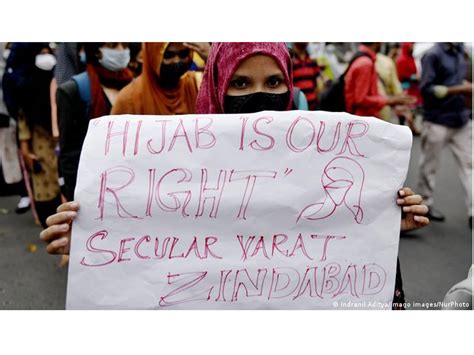 "HIJAB IS OUR
RIGHT"
SECULAR VARAT
ZINDABAD
© Indranil Aditya/imago images/NurPhoto